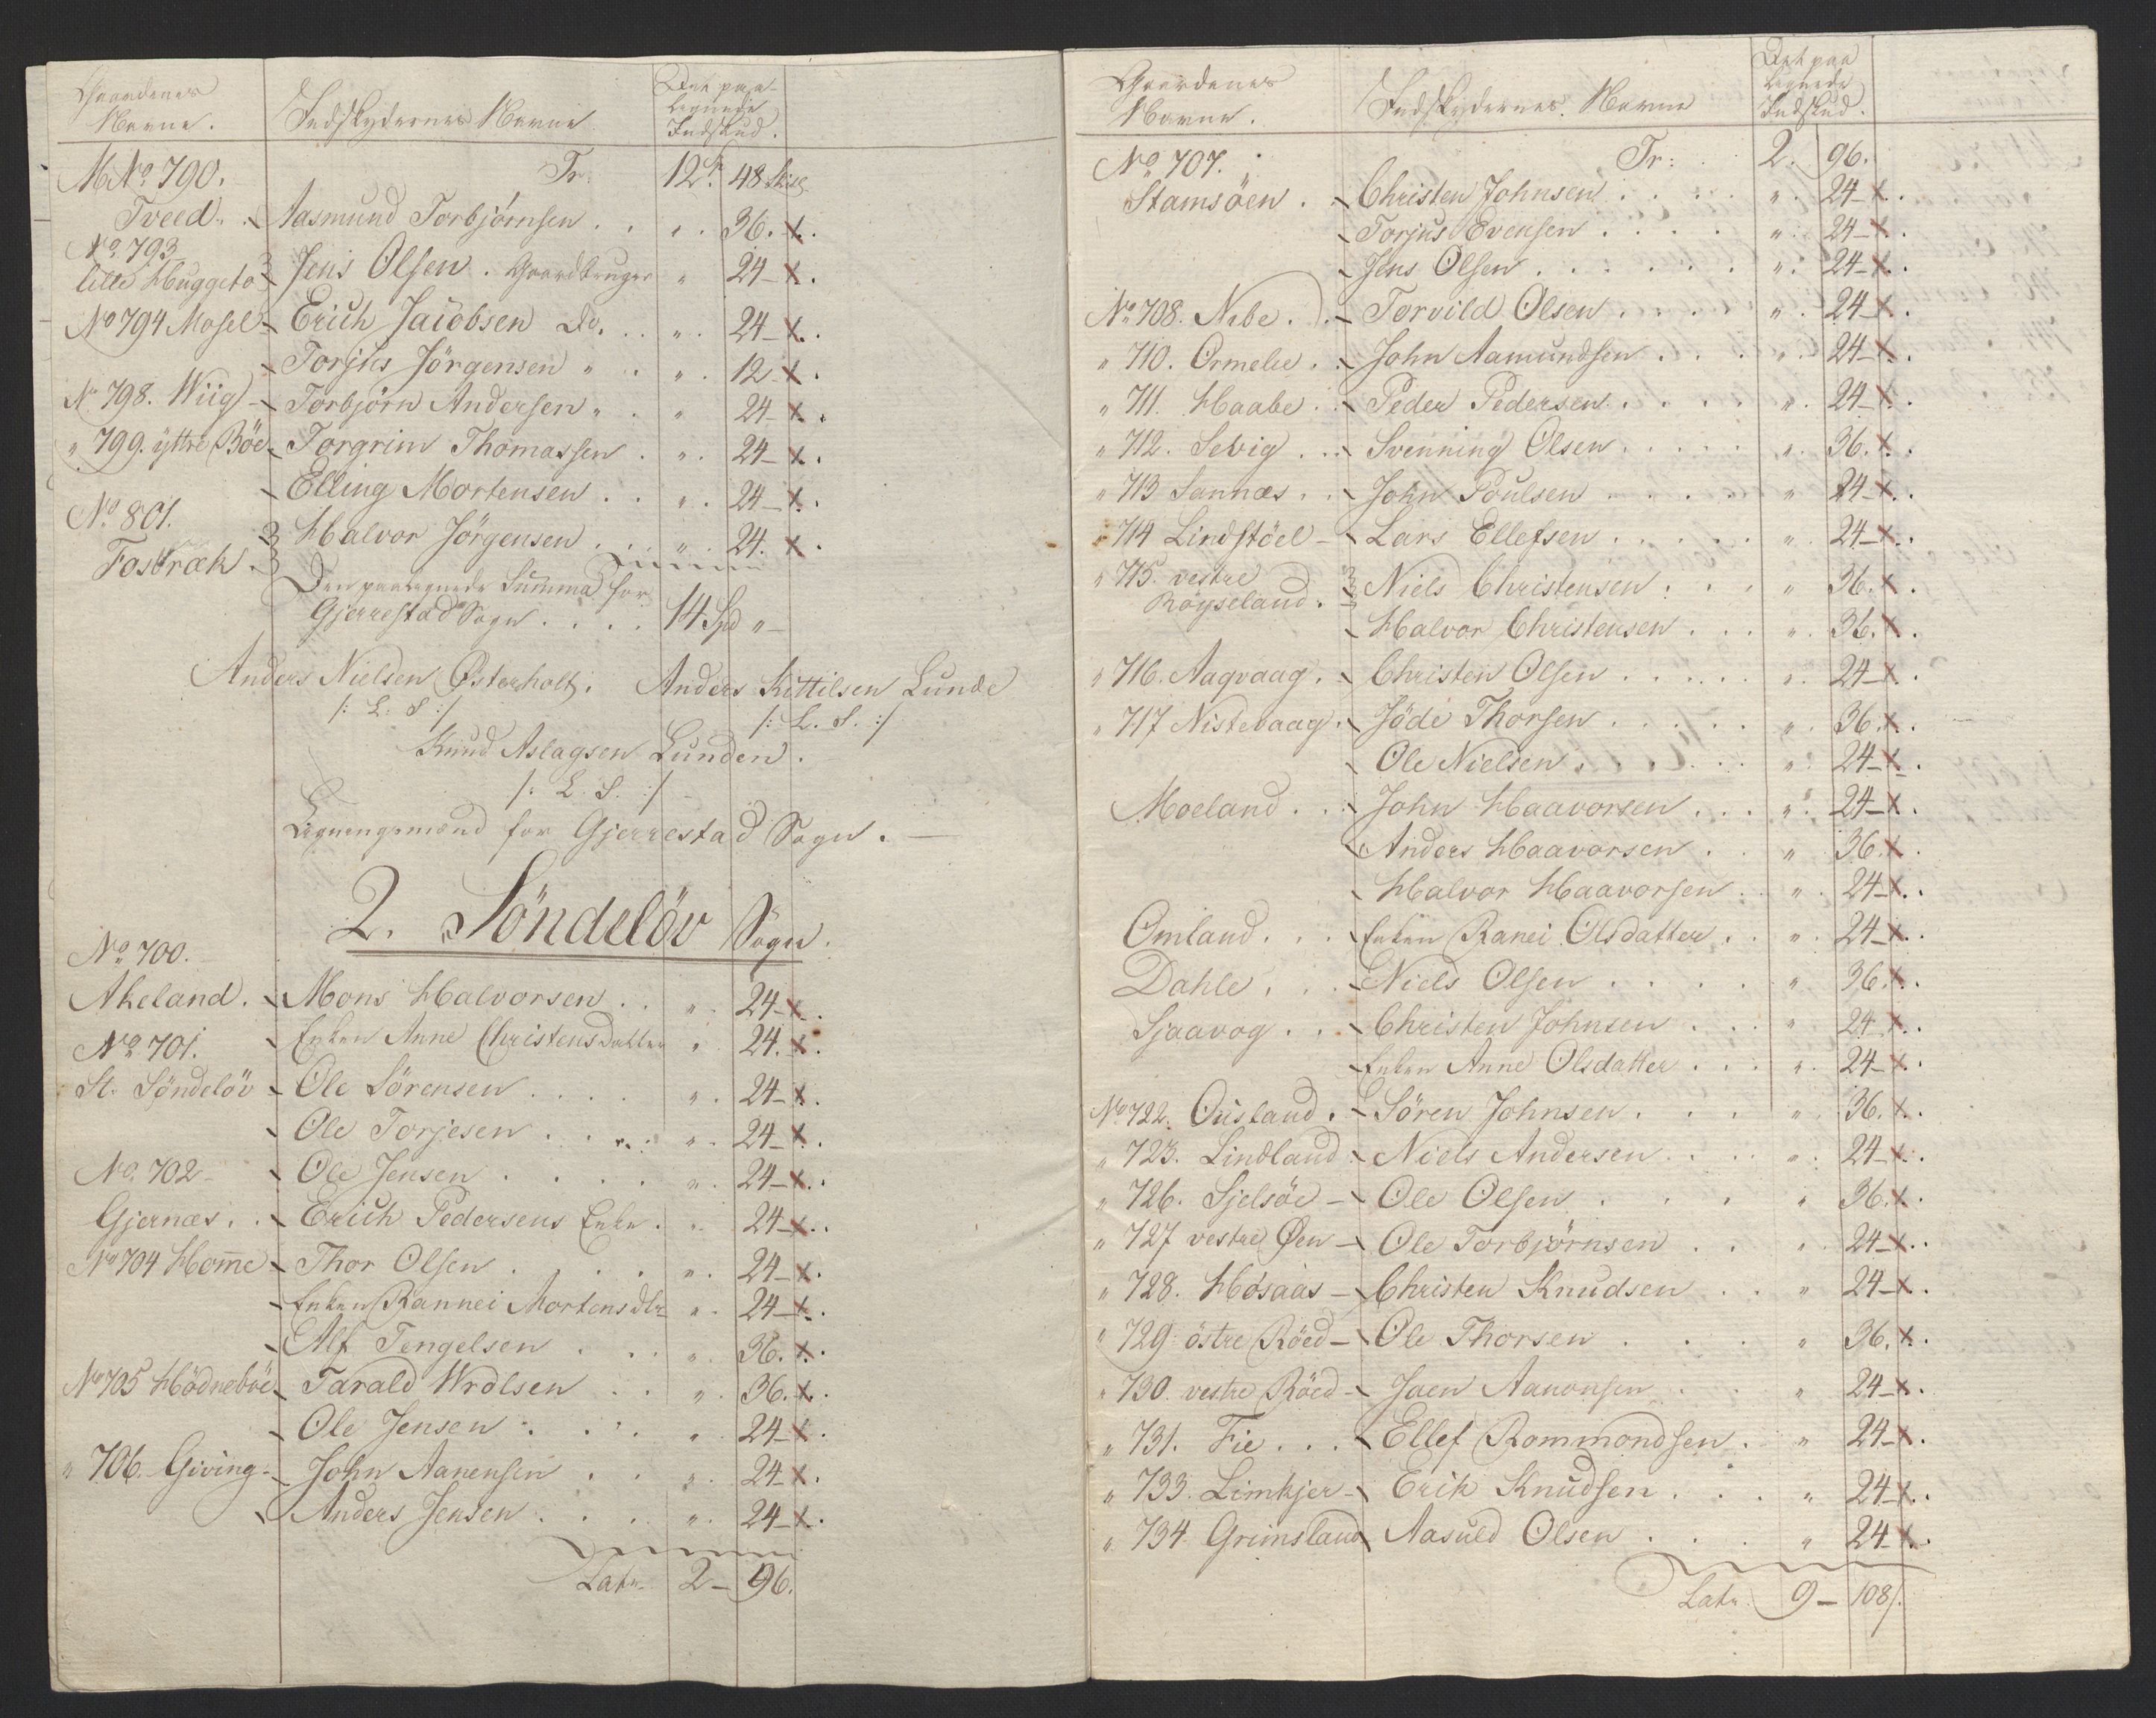 Gaardenes Navne. Indskydernes Navne Det paa lignede Indskud.
MNo 790. Tr. 12 Sp. 48 Skill.
Tveed. Aasmund Torbjørnsen . . " . 36. x.
No 793
lille Huggeto Jens Olsen. Gaardbruger " 24 - x.
No 794 Mosel - Erich Jacobsen Do. . . " . 24 - x.
Torjus Jörgensen " . " . 12 - x.
No 798. Wiig - Torbjörn Andersen " . " 24 - x.
" 799. yttre Böe - Torgrim Thomassen . " . 24 - x.
Elling Mortensen . . " . 24 - x.
No 801.
Fosbræk. Halvor Jörgensen . . . " . 24. x.
Den paalignede Summa for
Gjerrestad Sogn . . . . 14 Spd " -
Anders Nielsen Østerholt. Anders Kittilsen Lunde
/: L. S :/ /: L. S. :/
Knud Aslagsen Lunden.
/: L. S. :/
Ligningsmænd for Gjerrestad Sogn. -
2. Söndelöv Sogn.
No 700.
Akeland. Mons Halvorsen . . " . 24 - x.
No 701. Enken Anne Christensdatter " 24. x.
St. Söndelöv - Ole Sörensen . . . . " . 24 - x.
Ole Torjesen . . . . " . 24 - x.
No 702 - Ole Jensen . . . . " . 24 - x.
Gjernæs. . Erich Pedersens Enke. " . 24 - x.
No 704 Homme - Thor Olsen . . . . " . 24 - x.
Enken Rannei Mortensdtr " . 24 - x.
Alf Tengelsen . . . " . 36. x.
No 705 Hödneböe Tarald Wrolsen . . " . 36. x.
Ole Jensen . . . . " . 24 - x.
" 706. Giving - John Aanensen . . " . 24 - x.
Anders Jensen . . . " . 24 - x.
Latr. 2 - 96.
Gaardenes Navne. Indskydernes Navne Det paa lignede Indskud.
No 707. Tr: . 2. 96.
Stamsöen. - Christen Johnsen . . . . " . 24 - x.
Torjus Evensen . . . . " . 24 - x.
Jens Olsen . . . . . " . 24 - x.
No 708. Nibe. . - Torvild Olsen . . . . " . 24 - x.
" 710. Ormelie. . John Aamundsen . . . " . 24 - x.
" 711. Haabe. . Peder Pedersen . . . . " . 24 - x.
" 712. Sevig. . . Svenning Olsen . . . . " . 36. x.
" 713 Sannæs. . John Poulsen . . . . " 24 - x.
" 714 Lindstöel - Lars Ellefsen . . . . " . 24 - x.
" 715. vestre
Röyseland. Niels Christensen . . . " 36. x.
Halvor Christensen . . . " . 36. x.
" 716. Aagvaag. - Christen Olsen . . . . " . 24 - x.
" 717 Nistevaag. Jöde Thorsen . . . . " . 36. x.
Ole Nielsen . . . . " . 24 - x.
Moeland. . John Haavorsen . . . " . 24 - x.
Anders Haavorsen . . " 36. x.
Halvor Haavorsen . . " . 24 - x.
Omland. . . Enken Ranei Olsdatter . . " . 24 - x.
Dahle. . . Niels Olsen . . . . " . 36. x.
Sjaavog. . . Christen Johnsen . . . " 24 x.
Enken Anne Olsdatter . . . " . 24 - x.
No 722. Ousland. - Sören Johnsen . . . " . 36. x.
" 723. Lindland - Niels Andersen . . . " . 24 - x.
" 726. Sjelsöe - Ole Olsen . . . . " 36. x.
" 727 vestre Øen - Ole Torbjörnsen . . . 24 - x.
" 728. Hosaas - Christen Knudsen . . " 24 - x.
" 729. östre Röed - Ole Thorsen . . . " 36. x.
" 730. vestre Röed - Joen Aanonsen . . " 24 - x.
" 731. Fie. . . Ellef Rommondsen. . " 24 - x.
" 733. Limkjer - Erik Knudsen . . . " 24 - x.
" 734. Grimsland Aasuld Olsen . . . " 24 - x.
Latr. 9 - 108 /.